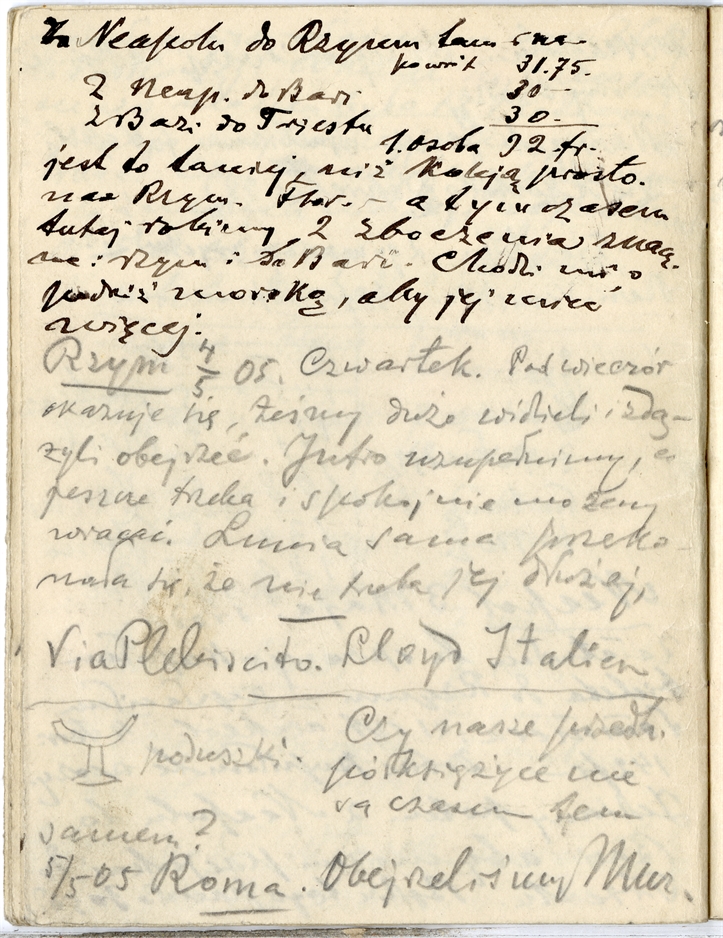 Z Neapolu do Rzymu tam i na-
powrót 31.75.
Z Neap. do Bari 30 -
Z Bari do Triestu 30 -
1. osoba 92 fr.
jest to taniej, niż koleją prosto.
na Rzym. Flor. - a tymczasem
tutaj robimy 2 zboczenia znacz-
ne: Rzym i do Bari. Chodzi mi o
podróż morską, aby jej mieć
więcej.
Rzym 4/5 05. Czwartek. Pod wieczór
okazuje się, żeśmy dużo widzieli i zdą-
żyli obejrzeć. Jutro uzupełnimy, co
jeszcze trzeba i spokojnie możemy
wracać. Lunia sama przeko-
nała się, że nie trzeba jej dłużej,
Via Plebiscito. Lloyd Italien
poduszki. Czy nasze przedh.
półksiężyce nie
są czasem tem
samem?
5/5 05 Roma. Obejrzeliśmy Muz.